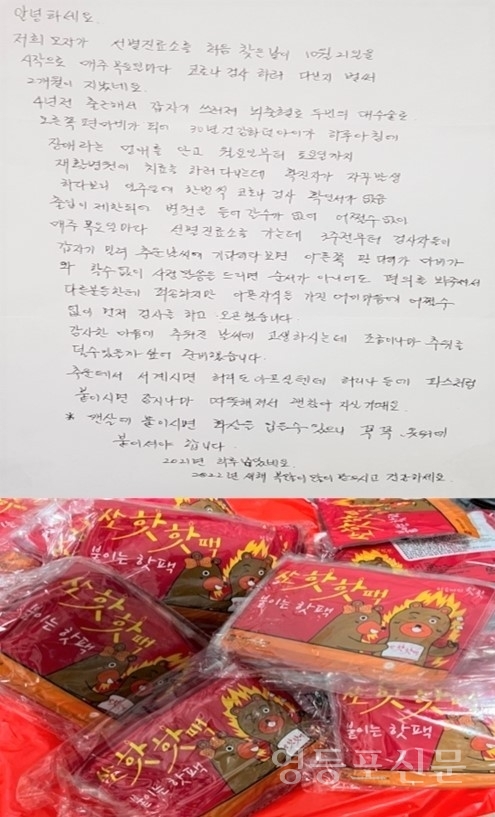 안녕하세요.
저희 모자가 선별진료소를 처음 찾은날이 10월 21일을
시작으로 매주 목요일마다 코로나 검사 하러 다닌지 벌써
2개월이 지났네요.
4년전 출근해서 갑자기 쓰러져 뇌출혈로 두번의 대수술로
오른쪽 편마비가 되어 30년 건강하던아이가 하루아침에
장애라는 멍에를 안고 월요일부터 토요일까지
재활병원에 치료를 하러 다니는데 확진자가 자꾸 발생
하다보니 일주일에 한번씩 코로나 검사 확인서가 없음
출입이 제한되어 병원을 들어 갈수가 없어 어쩔수 없이
매주 목요일마다 선별진료소를 가는데 3주전부터 검사자들이
갑자기 많아 추운날씨에 기다리다보면 아픈쪽 팔 다리가 마비가
와 할수없이 사정말씀을 드리면 순서가 아니어도 편의를 봐주셔서
다른분들한테 죄송하지만 아픈자식을 가진 어미마음에 어쩔수
없이 먼저 검사를 하고 오곤했습니다.
감사한 마음에 추워진 날씨에 고생하시는데 조금이나마 추위를
덜수있을까 싶어 준비했습니다.
추운데서 서계시면 허리도 아프실텐데 허리나 등에 파스처럼
붙이시면 조금이나마 따뜻해져서 괜찮아 지실거예요.
* 맨살에 붙이시면 화상을 입을수 있으니 꼭 꼭 옷위에
붙이셔야 합니다.
2021년 하루남았네요.
2022년 새해 복많이 많이 받으시고 건강하세요.
쏘핫핫팩
붙이는 핫팩
쏘핫핫팩
붙이는 핫팩
쏘핫핫팩
붙이는 핫팩
쏘핫핫팩
붙이는 핫팩
쏘핫핫팩
붙이는 핫팩
영등포신문